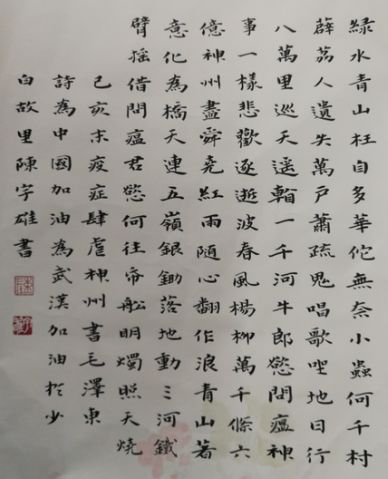 綠水青山枉自多華佗無奈小蟲何千村
薜荔人遺失萬戶蕭疏鬼唱歌坐地日行
八萬里巡天遥看一千河牛郎慾問瘟神
事一樣悲歡逐逝波春風楊柳萬千條六
億神州盡舜堯紅雨隨心翻作浪青山著
意化為橋天連五嶺銀鋤落地動三河鐵
臂搖借問瘟君慾何往帋船明燭照天燒
己亥末疫症肆虐神州書毛澤東
詩為中國加油為武漢加油於少
白故里陳字雄書